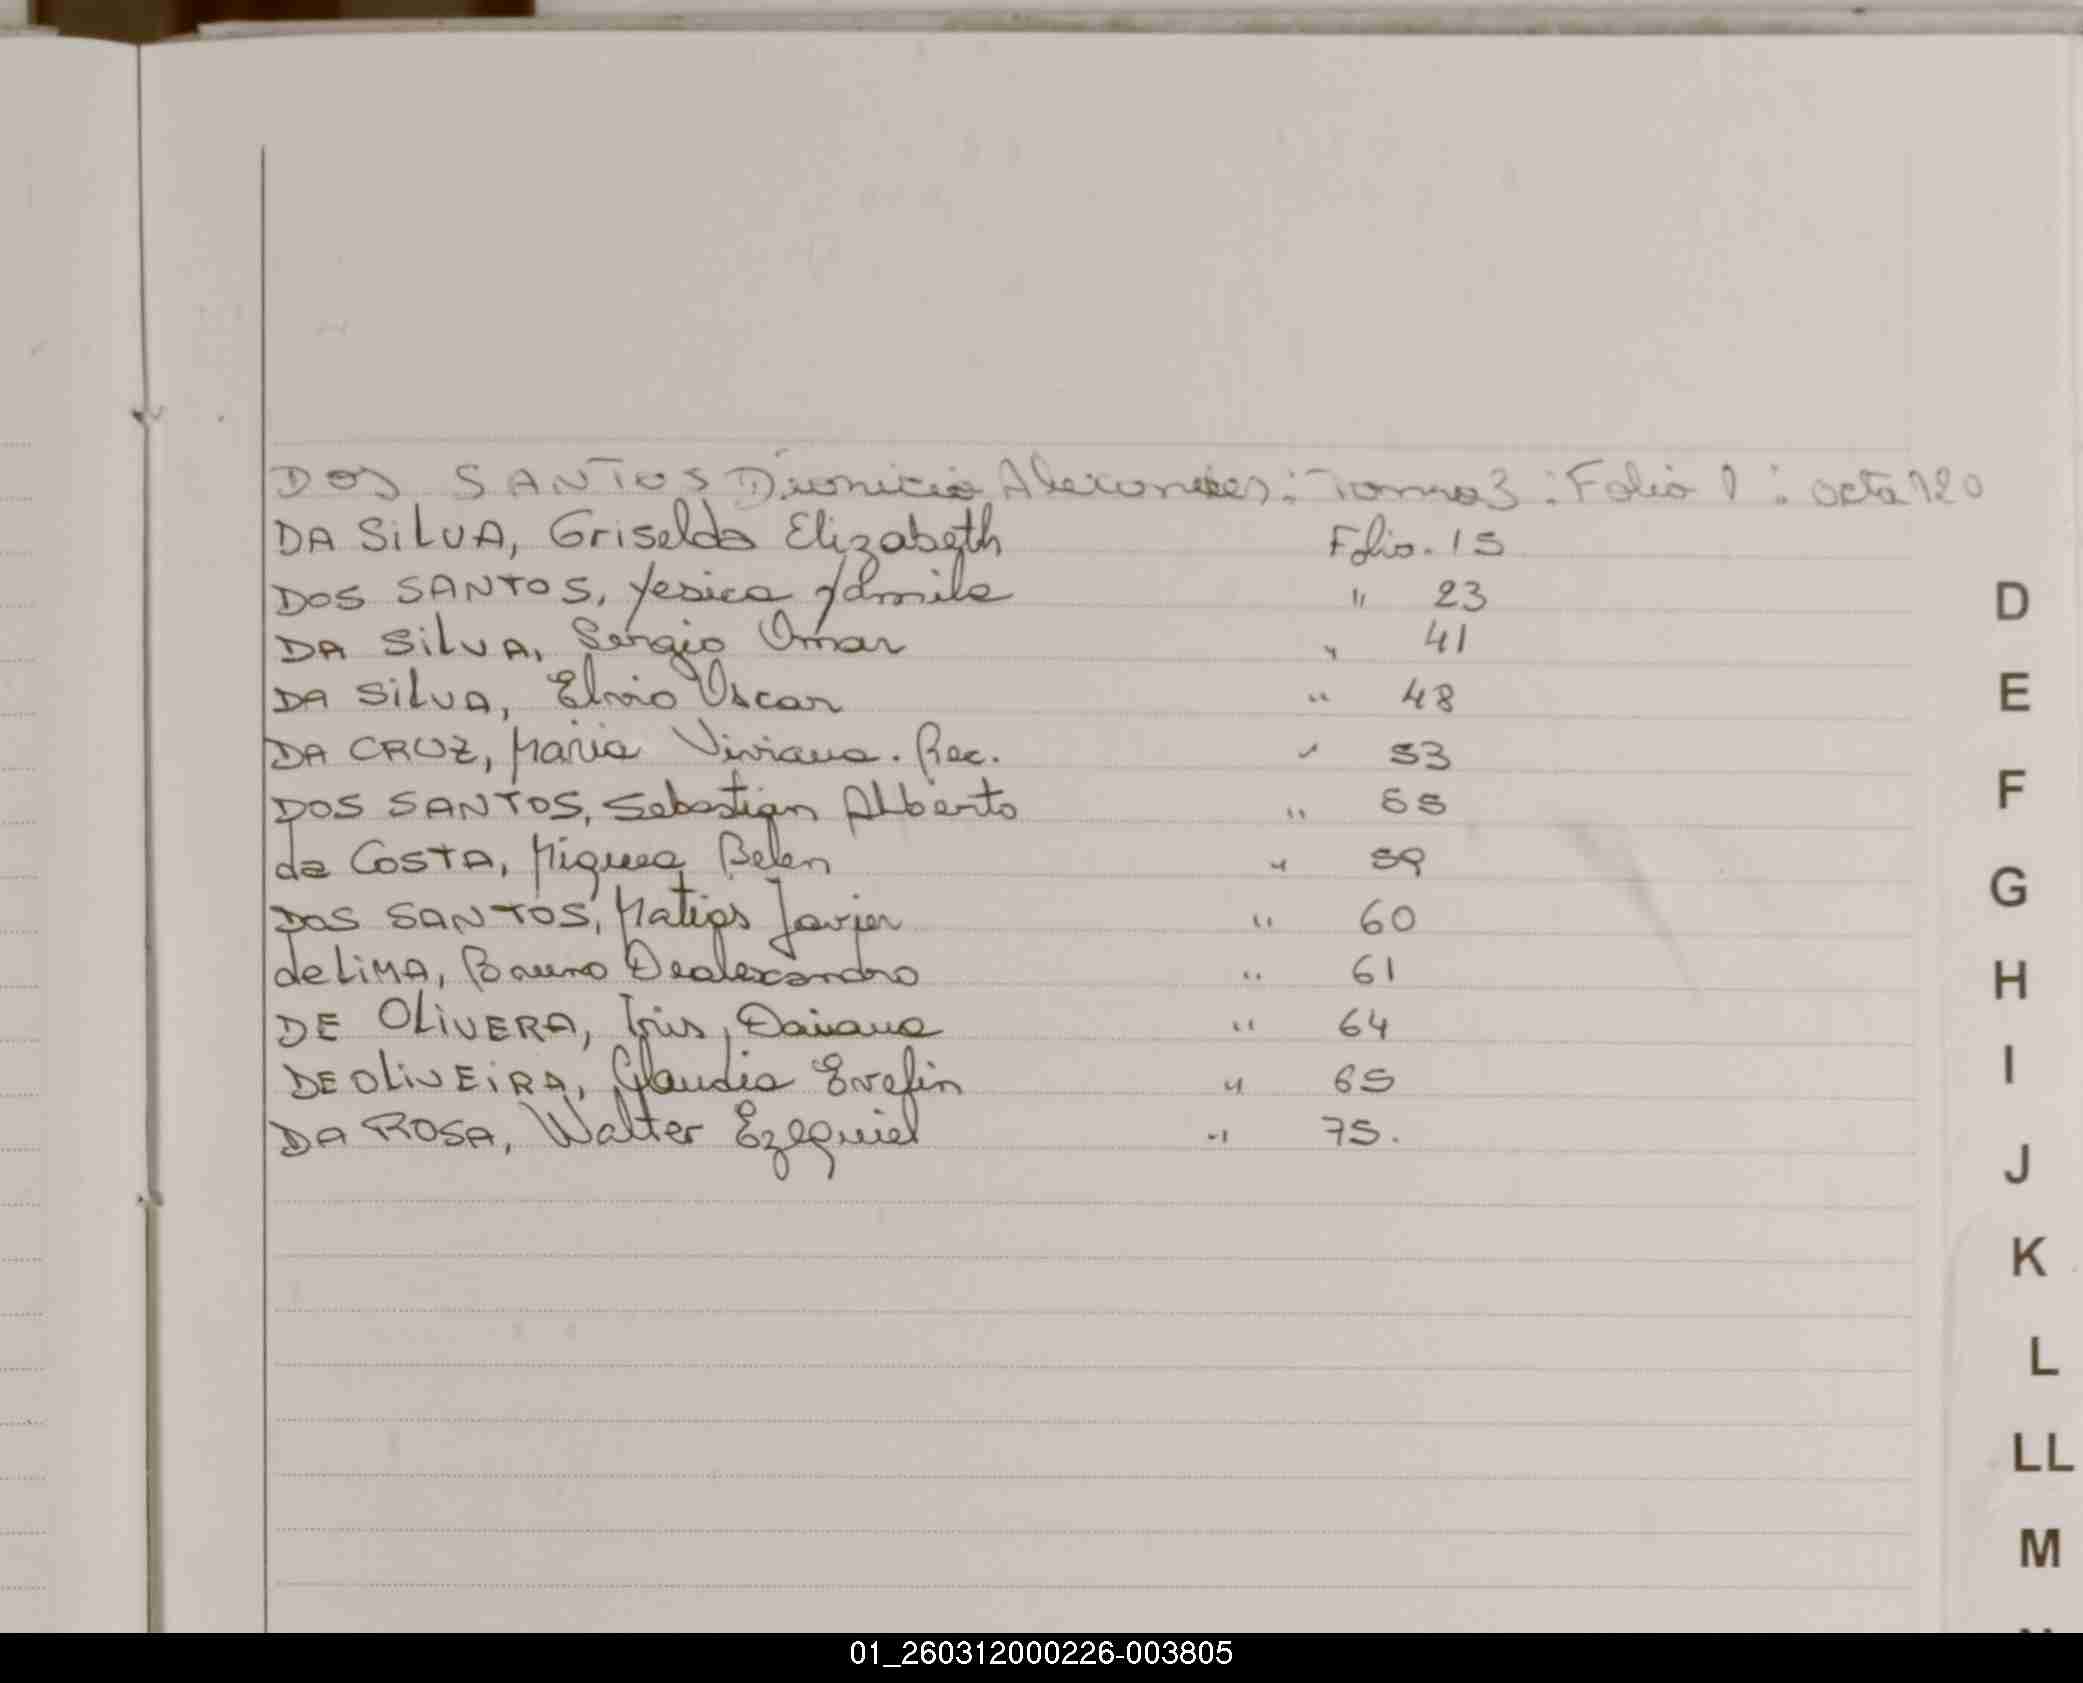 DOS SANTOS Dionicio Alexander: Tomo 3: Folio 1: acta 120
DA SiLVA, Griselda Elizabeth Folio. 15
DOS SANTOS, Yesica Yamila " 23
DA SiLVA, Sergio Omar " 41
DA SiLVA, Elvio Oscar " 48
DA CRUZ, Maria Viviana. Rec. " 53
DOS SANTOS, Sebastian Alberto " 55
da COSTA, Miquea Belen " 59
DOS SANTOS, Matias Javier " 60
de LiMA, Bruno Dealexandro " 61
DE OLiVERA, Iris, Daiana " 64
DE OLiVEiRA, Claudia Evelin " 65
DA ROSA, Walter Ezequiel " 75.
D
E
F
G
H
I
J
K
L
LL
M
01_260312000226-003805